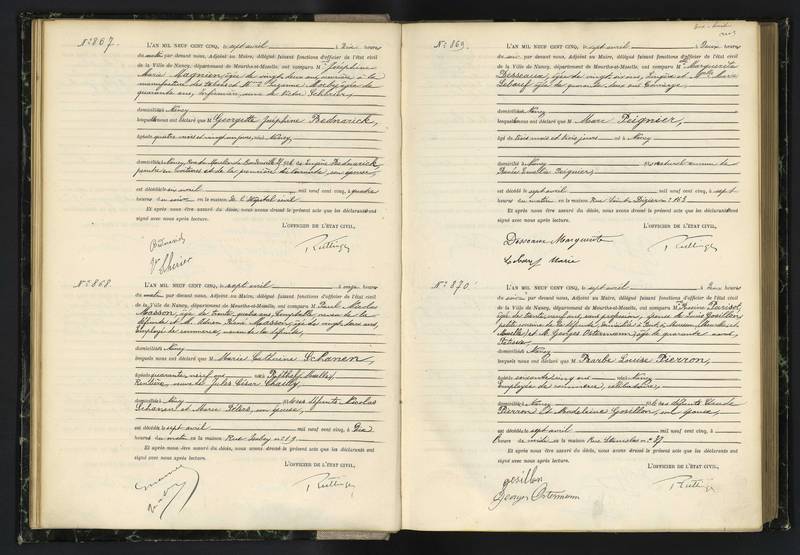 N° 867.
L'AN MIL NEUF CENT CINQ, le sept avril à Dix heures
du matin par devant nous, Adjoint au Maire, délégué faisant fonctions d'officier de l'état civil
de la Ville de Nancy, département de Meurthe-et-Moselle, ont comparu M Joséphine
Marie Magnien, âgée de vingt deux ans, ouvrière à la
manufacture des tabacs et
quarante ans, infirmière, Scherier,
domiciliés à Nancy
lesquelles nous ont déclaré que M Georgette Joséphine Bednarick,
âgée de quatre mois et cinq jours, née à Nancy,
domiciliée à Nancy, Eugène Bednarick,
peintre en voitures et de la première déclarante, son épouse,
est décédée le six avril mil neuf cent cinq, à quatre
heures du soir en la maison de l'hôpital civil
Et après nous être assuré du décès, nous avons dressé le présent acte que les déclarants ont
signé avec nous après lecture.
L'OFFICIER DE L'ÉTAT CIVIL,
Scherier
N° 868.
L'AN MIL NEUF CENT CINQ, le sept avril à onze heures
du matin par devant nous, Adjoint au Maire, délégué faisant fonctions d'officier de l'état civil
de la Ville de Nancy, département de Meurthe-et-Moselle, ont comparu M Paul Nicolas
Masson, âgé de trente quatre ans, comptable, neveu de la
défunte et M. Adrien René Masson, âgé de vingt deux ans,
Employé de commerce, neveu de la défunte,
domiciliés à Nancy
lesquels nous ont déclaré que M Marie Catherine Schanen,
âgée de quarante neuf ans née à (Moselle)
Rentière, veuve de Jules César Chailly
domiciliée à Nancy des défunts Nicolas
Schanen et Marie Peters, son épouse,
est décédée le sept avril mil neuf cent cinq, à Dix
heures du matin en la maison Rue n° 19
Et après nous être assuré du décès, nous avons dressé le présent acte que les déclarants ont
signé avec nous après lecture.
L'OFFICIER DE L'ÉTAT CIVIL,
N° 869.
L'AN MIL NEUF CENT CINQ, le sept avril à Deux heures
du soir, par devant nous, Adjoint au Maire, délégué faisant fonctions d'officier de l'état civil
de la Ville de Nancy, département de Meurthe-et-Moselle, ont comparu M Marguerite
Desseaux, âgée de vingt six ans, lingère et Marie
âgée de quarante deux ans
domiciliées à Nancy
lesquelles nous ont déclaré que M Marc Peignier,
âgé de trois mois et trois jours né à Nancy
domicilié à Nancy
est décédé le sept avril mil neuf cent cinq, à sept
heures du matin en la maison Rue Saint Dizier n° 153
Et après nous être assuré du décès, nous avons dressé le présent acte que les déclarants ont
signé avec nous après lecture.
L'OFFICIER DE L'ÉTAT CIVIL,
Marguerite
Marie
N° 870.
L'AN MIL NEUF CENT CINQ, le sept avril à Deux heures
du soir, par devant nous, Adjoint au Maire, délégué faisant fonctions d'officier de l'état civil
de la Ville de Nancy, département de Meurthe-et-Moselle, ont comparu M Parisot,
âgée de trente neuf ans, sans profession, épouse de Louis Gosillon,
petite cousine de la défunte,
et M. Georges Ostermann, âgé de quarante ans,
domiciliés à Nancy
lesquels nous ont déclaré que M Barbe Louise Pierron,
âgée de soixante cinq ans née à Nancy
Employée de commerce, célibataire,
domiciliée à Nancy des défunts Claude
Pierron et Madeleine Gosillon, son épouse,
est décédée le sept avril mil neuf cent cinq, à
heure de midi en la maison Rue Stanislas n° 27
Et après nous être assuré du décès, nous avons dressé le présent acte que les déclarants ont
signé avec nous après lecture.
L'OFFICIER DE L'ÉTAT CIVIL,
gosillon
Georges Ostermann